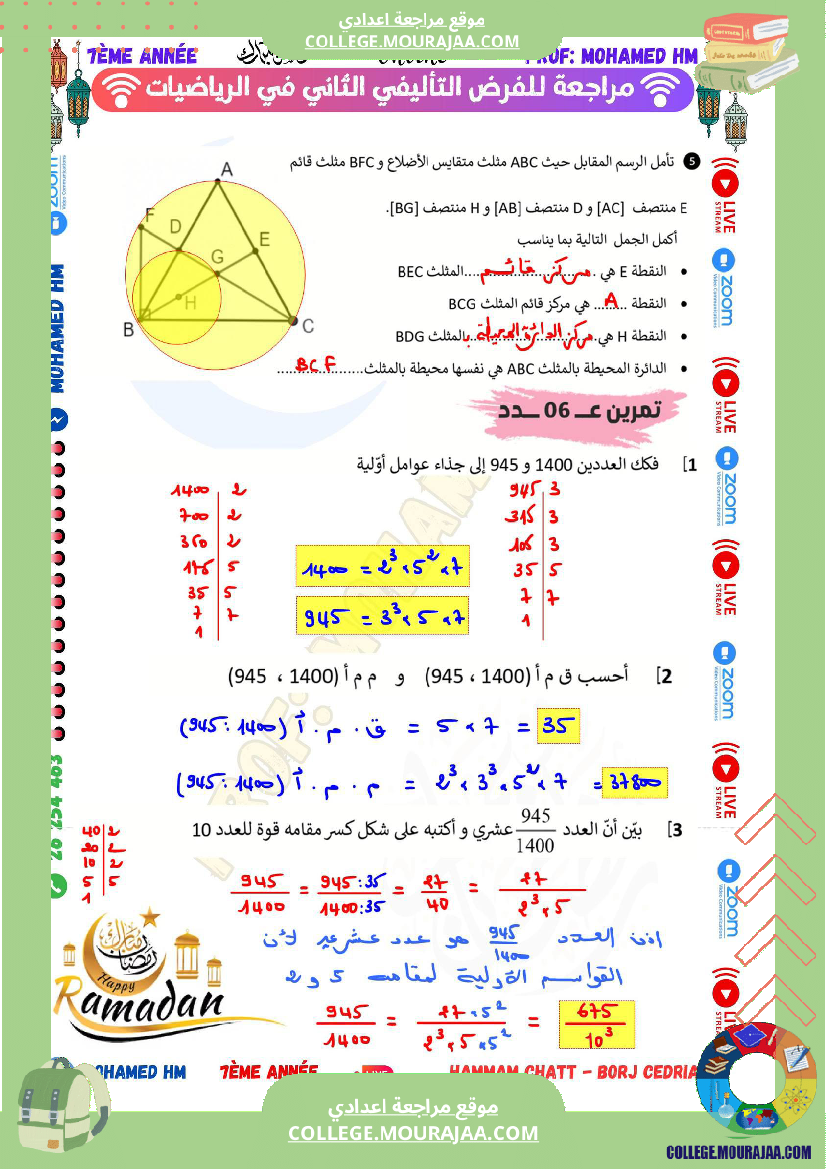 موقع مراجعة اعدادي
COLLEGE.MOURAJAA.COM
7ÈME ANNÉE
PROF: MOHAMED HM
مراجعة للفرض التأليفي الثاني في الرياضيات
5 تأمل الرسم المقابل حيث ABC مثلث متقايس الأضلاع و BFC مثلث قائم
E منتصف [AC] و D منتصف [AB] و H منتصف [BG].
أكمل الجمل التالية بما يناسب
• النقطة E هي ....مركز قائم.... المثلث BEC
• النقطة ...A... هي مركز قائم المثلث BCG
• النقطة H هي..مركز الدائرة المحيطة ب..بالمثلث BDG
• الدائرة المحيطة بالمثلث ABC هي نفسها محيطة بالمثلث....BCF....
A
F
D
E
G
H
B
C
تمرين عـــ 06 ــدد
1] فكك العددين 1400 و 945 إلى جذاء عوامل أوّلية
1400 | 2
700 | 2
350 | 2
175 | 5
35 | 5
7 | 7
1
945 | 3
315 | 3
105 | 3
35 | 5
7 | 7
1
1400 = 2³ × 5² × 7
945 = 3³ × 5 × 7
2] أحسب ق م أ (1400 ، 945) و م م أ (1400 ، 945)
ق . م . أ (1400 ; 945) = 5 × 7 = 35
م . م . أ (1400 ; 945) = 2³ × 3³ × 5² × 7 = 37800
3] بيّن أنّ العدد 945/1400 عشري و أكتبه على شكل كسر مقامه قوة للعدد 10
40 | 2
20 | 2
10 | 2
5 | 5
1
945/1400 = 945:35/1400:35 = 27/40 = 27/2³×5
اذن العدد 945/1400 هو عدد عشري لأن
القواسم الأولية لمقامه 5 و 2
945/1400 = 27×5²/2³×5×5² = 675/10³
رمضان مبارك
Happy
Ramadan
MOHAMED HM
26 254 463
zoom
Video Communications
LIVE
STREAM
zoom
Video Communications
LIVE
STREAM
zoom
Video Communications
LIVE
STREAM
zoom
Video Communications
LIVE
STREAM
zoom
Video Communications
LIVE
STREAM
PROF: MOHAMED
OHAMED HM
7ÈME ANNÉE
HAMMAM CHATT - BORJ CEDRIA
موقع مراجعة اعدادي
COLLEGE.MOURAJAA.COM
COLLEGE.MOURAJAA.COM